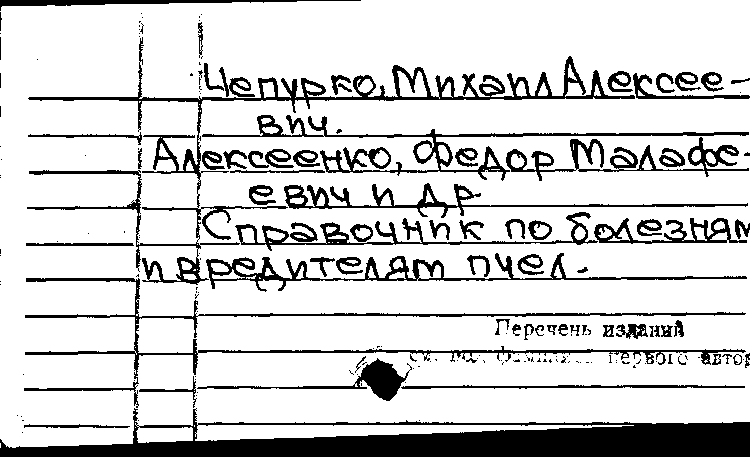 Чепурко, Михаил Алексее-
вич.
Алексеенко, Федор Малафе-
евич и др
Справочник по болезням
и вредителям пчел.
Перечень изданий
см. на фамилию первого автор